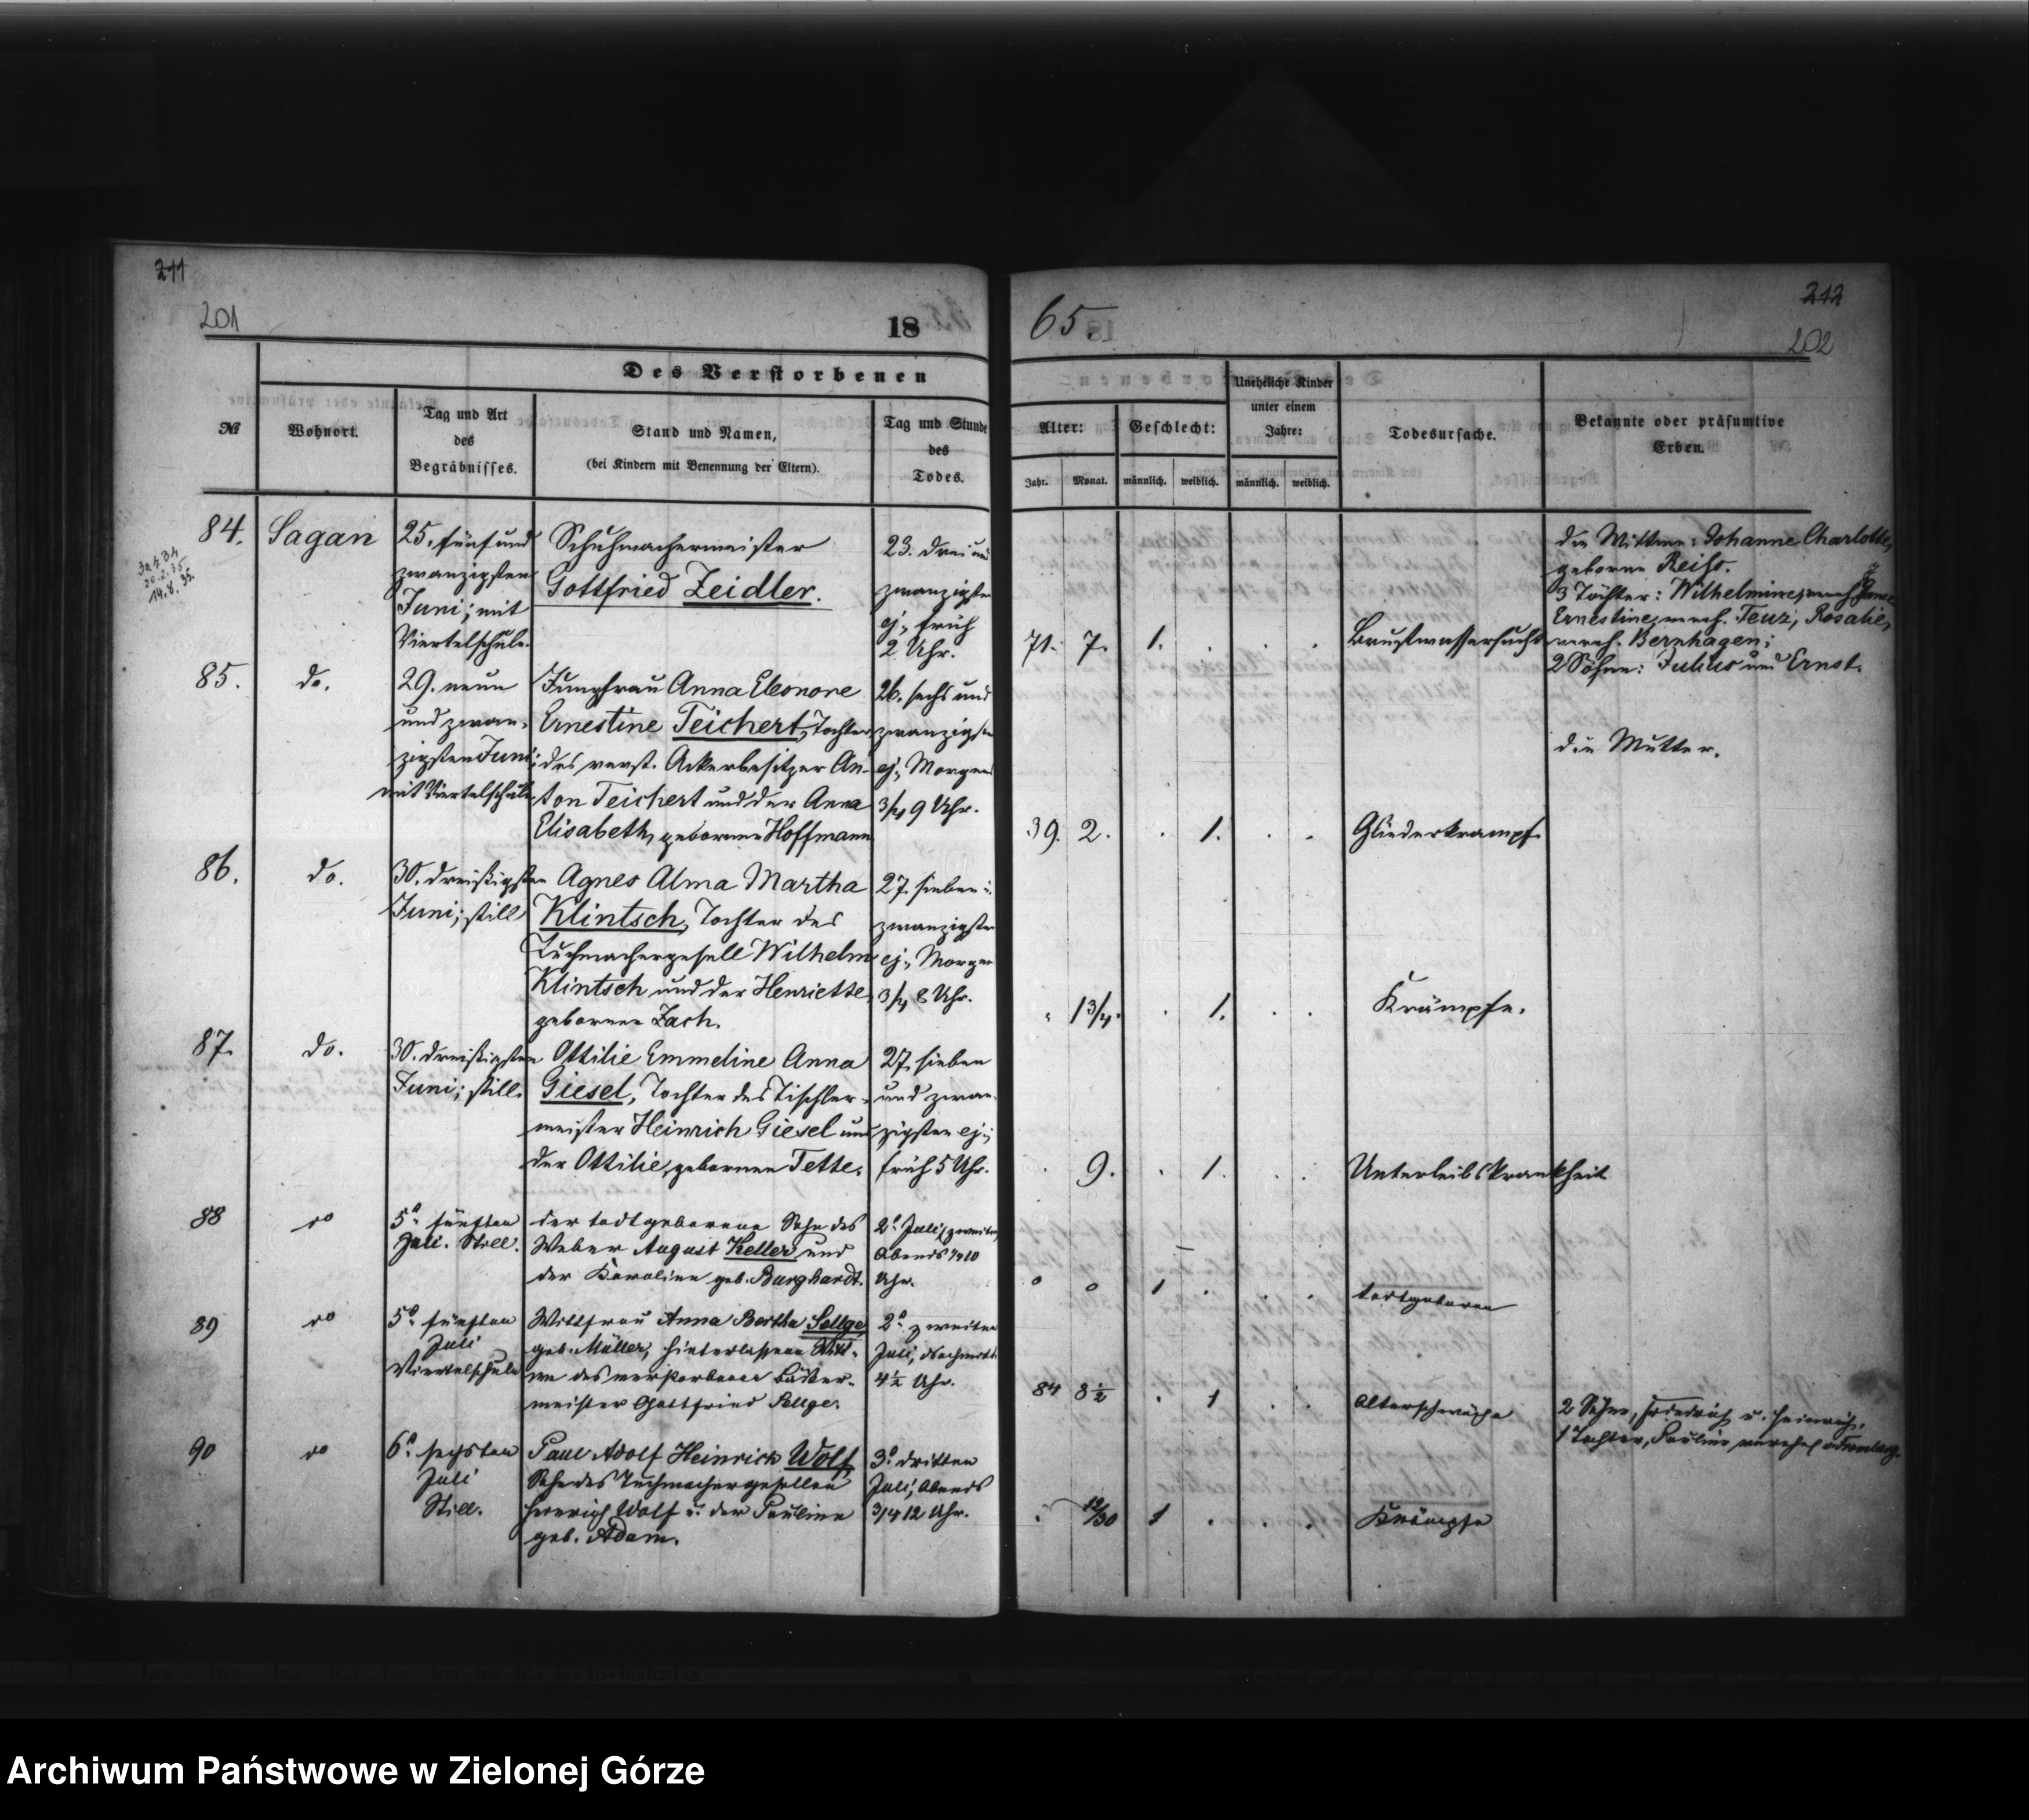 211
201
18
65.
212
202
Des Verstorbenen
№
Wohnort.
Tag und Art
des
Begräbnisses.
Stand und Namen,
(bei Kindern mit Benennung der Eltern).
Tag und Stunde
des
Todes.
Alter:
Jahr.
Monat.
Geschlecht:
männlich.
weiblich.
Uneheliche Kinder
unter einem
Jahre:
männlich.
weiblich.
Todesursache.
Bekannte oder präsumtive
Erben.
84.
14.8.35.
Sagan
25. fünf und
zwanzigsten
Juni; mit
Viertelschule.
Schuhmachermeister
Gottfried Zeidler.
23. drei und
zwanzigsten
ej., früh
2 Uhr.
71.
7.
1.
Brustwassersucht
die Wittwe: Johanne Charlotte,
geborne Reiß.
3 Töchter: Wilhelmine,
Ernestine, verh. Teuz; Rosalie,
verh. Bernhagen;
2 Söhne: Julius und Ernst.
85.
do.
29. neun
und zwan-
zigsten Juni;
mit Viertelschule
Jungfrau Anna Eleonore
Ernestine Teichert, Tochter
des verst. Ackerbesitzer An-
ton Teichert und der Anna
Elisabeth, geborne Hoffmann
26. sechs und
zwanzigsten
ej., Morgens
3/4 9 Uhr.
39.
2.
1.
Gliederkrampf.
die Mutter.
86.
do.
30. dreißigsten
Juni; still
Agnes Alma Martha
Klintsch, Tochter des
Tuchmachergesell Wilhelm
Klintsch und der Henriette,
gebornen Zach.
27. sieben u.
zwanzigsten
ej., Morgen
3/4 8 Uhr.
1 3/4.
1.
Krämpfe.
87.
do.
30. dreißigsten
Juni; still.
Ottilie Emmeline Anna
Giesel, Tochter des Tischler-
meister Heinrich Giesel und
der Ottilie, gebornen Tette.
27. sieben
und zwan-
zigsten ej.;
früh 5 Uhr.
9.
1.
Unterleibskrankheit
88
do
5. fünften
Juli. Still.
der todtgeborene Sohn des
Weber August Keller und
der Karoline geb. Burghardt.
2. Juli (zweiten)
Abends 1/4 10
Uhr.
0
0
1
todtgeboren
89
do
5. fünften
Juli
Viertelschule
Wittfrau Anna Bertha Sellge
geb. Müller, hinterlassene Witt-
we des verstorbenen Bäcker-
meister Gottfried Sellge.
2. zweiten
Juli, Nachmitt.
4 1/2 Uhr.
84
8 1/2
1
Altersschwäche
2 Söhne, Friedrich u. Heinrich.
1 Tochter, Pauline
90
do
6. sechsten
Juli
Still.
Paul Adolf Heinrich Wolf
Sohn des Tuchmachergesellen
Heinrich Wolf u. der Pauline
geb. Adam.
3. dritten
Juli, Abends
3/4 12 Uhr.
12/30
1
Krämpfe
Archiwum Państwowe w Zielonej Górze